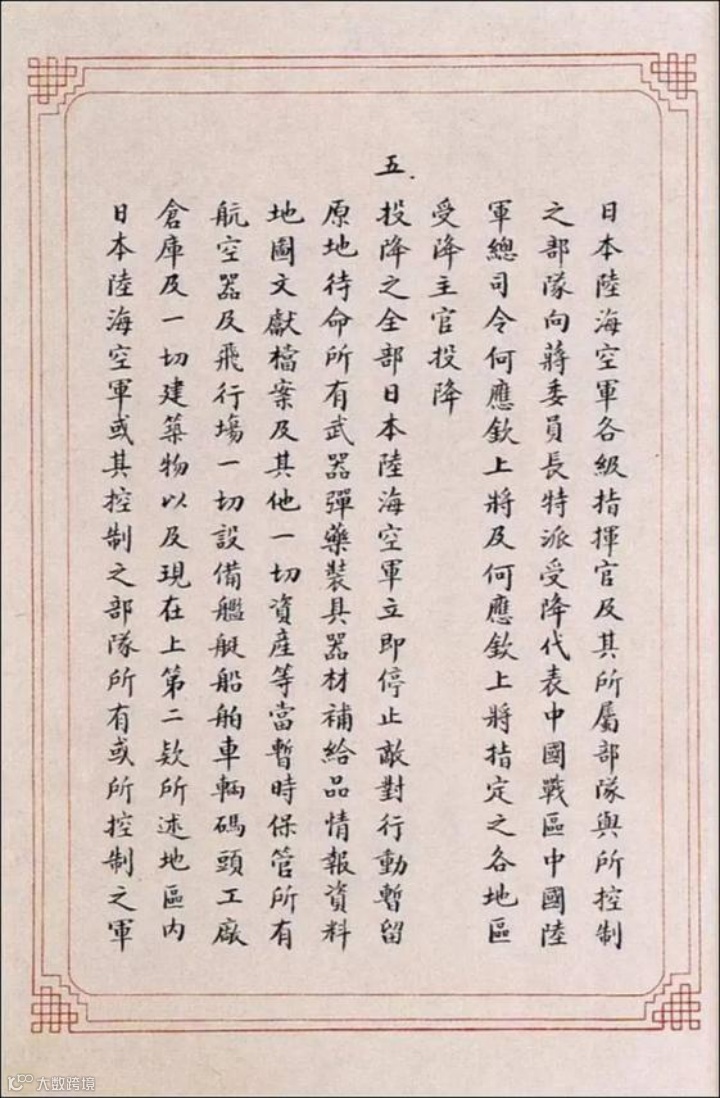 日本陸海空軍各級指揮官及其所屬部隊與所控制
之部隊向蔣委員長特派受降代表中國戰區中國陸
軍總司令何應欽上將及何應欽上將指定之各地區
受降主官投降
五.
投降之全部日本陸海空軍立即停止敵對行動暫留
原地待命所有武器彈藥裝具器材補給品情報資料
地圖文獻檔案及其他一切資產等當暫時保管所有
航空器及飛行場一切設備艦艇船舶車輛碼頭工廠
倉庫及一切建築物以及現在上第二款所述地區內
日本陸海空軍或其控制之部隊所有或所控制之軍
大数跨境